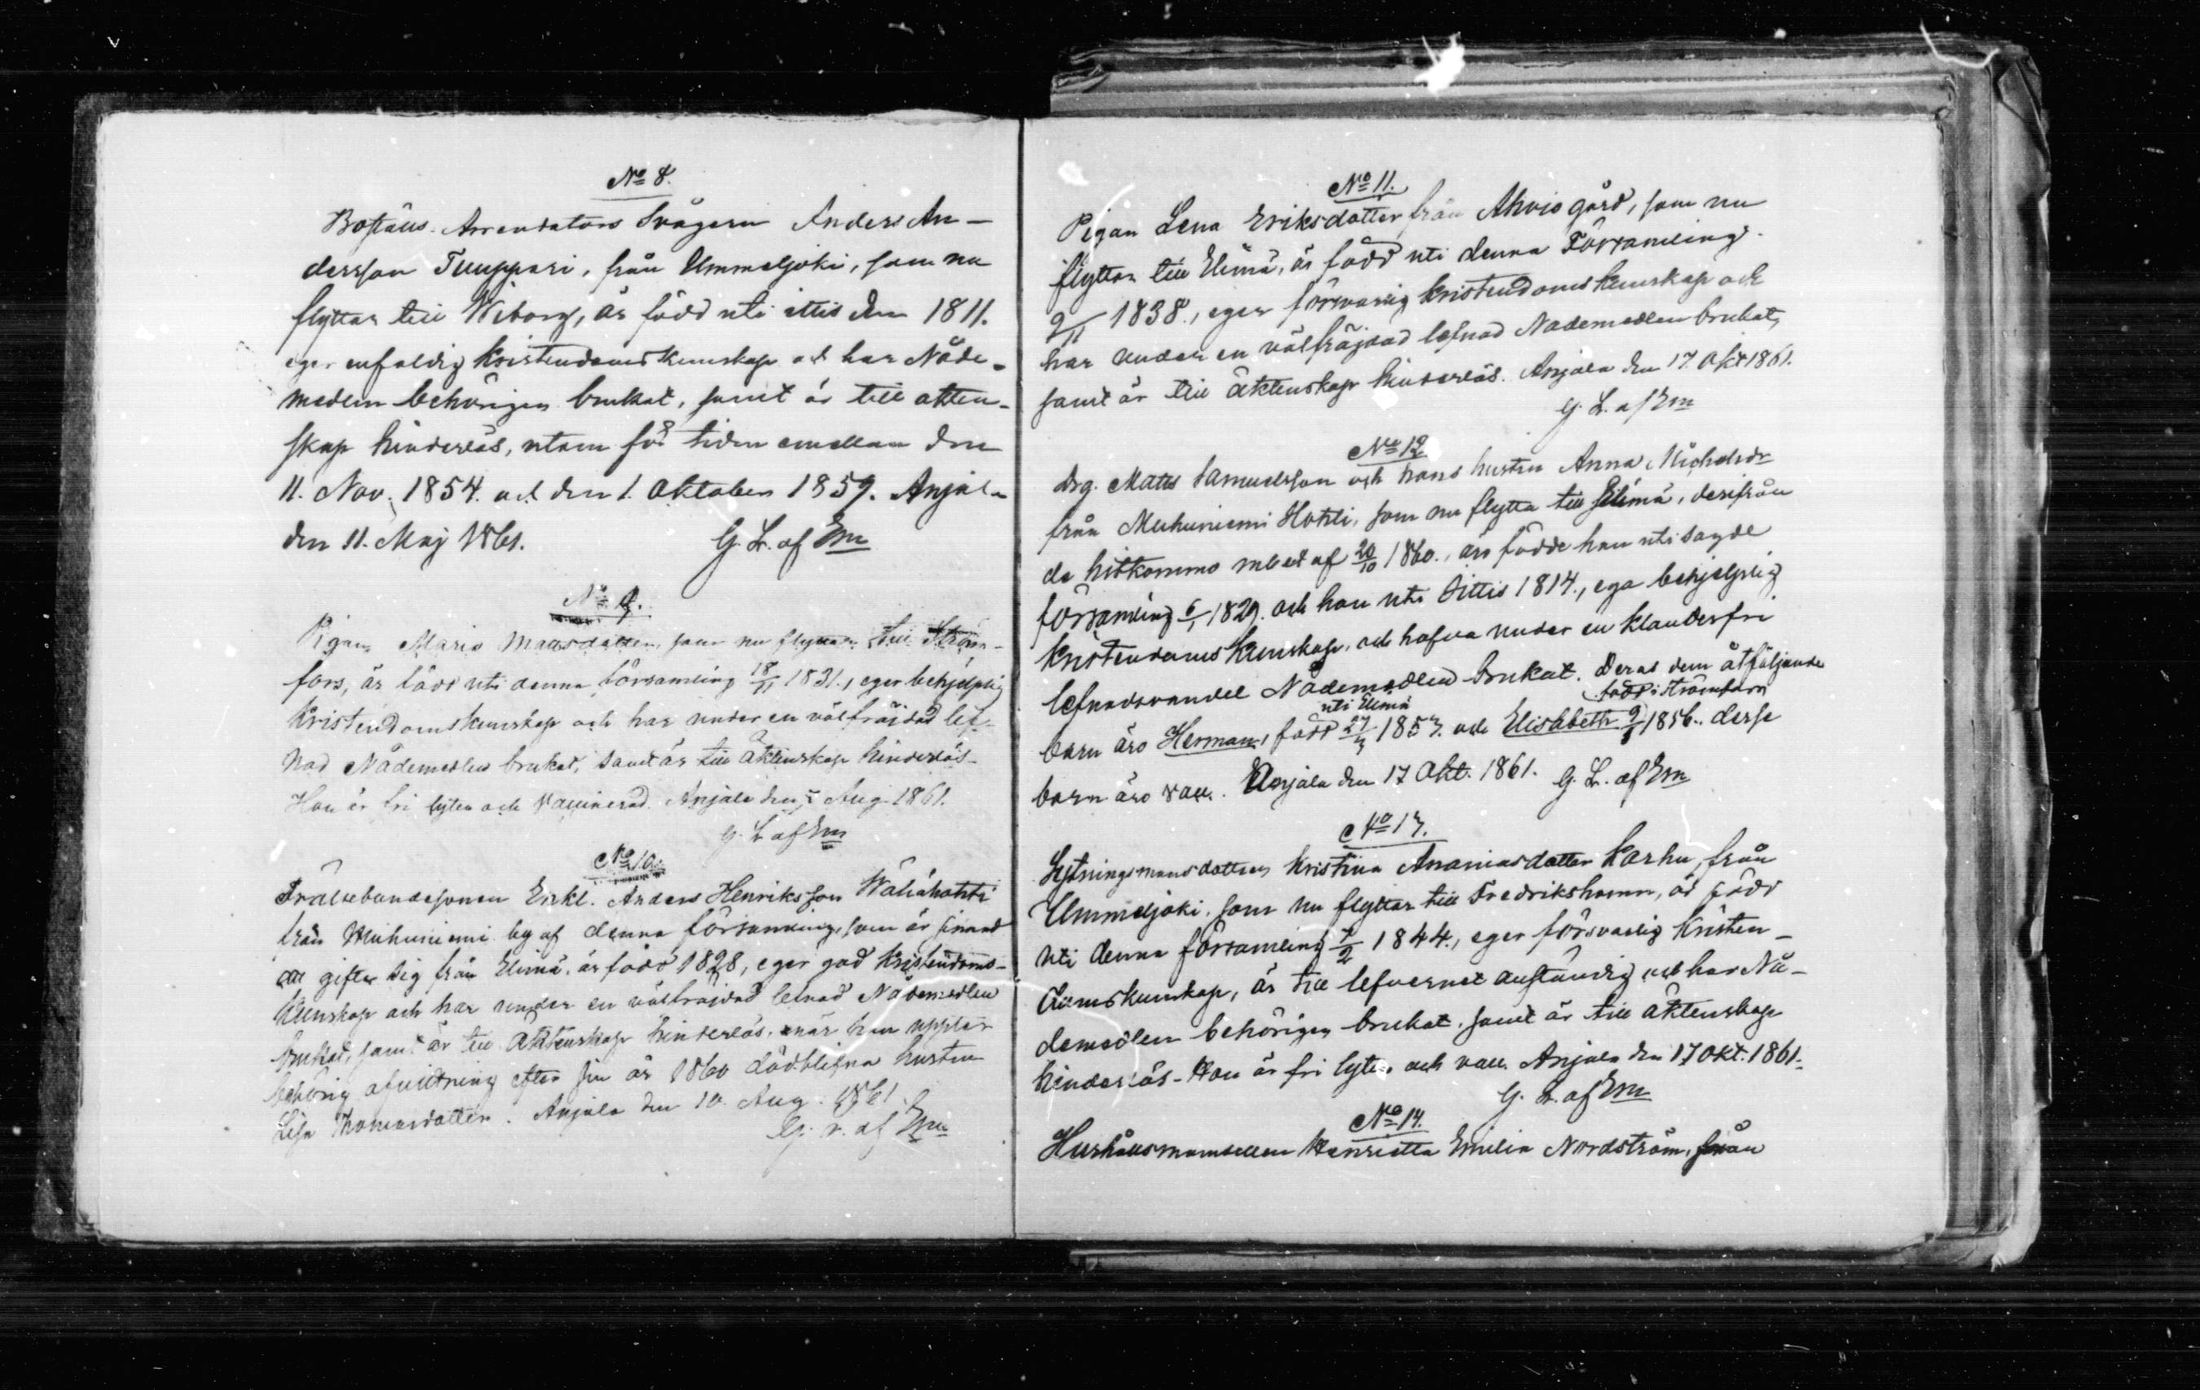 No 8.
Boställs Arrendators Svågern Anders An-
dersson Tuuppari, från Ummeljoki, som nu
flyttar till Wiborg, är född uti ittis den 1811.
eger enfaldig kristendomskunskap och har Nåde-
medlen behörigen brukat, samt är till äkten-
skap hinderlös, utom för tiden emellan den
11. Nov. 1854. och den 1. Oktober 1859. Anjala
den 11. Maj 1861. G. L. af Em
No 9.
Pigan Maria Matsdotter, som nu flyttar till Ström-
fors, är född uti denna församling 18/11 1831., eger behjelplig
Kristendomskunskap och har under en välfräjdad lef-
nad Nådemedlen brukat, samt är till äktenskap hinderlös.
Hon är fri lyten och vaccinerad. Anjala den Aug. 1861.
G. L. af Em
No 10.
Frälsebondesonen Enkl. Anders Henriksson
från Muhuniemi by af denna församling, som är sinnad
att gifta sig från Elimä, är född 1828, eger god Kristendoms-
kunskap och har under en välfräjdad lefnad Nådemedlen
brukat, samt är till äktenskap hinderlös, när han uppter
behörig afvittring efter sin år 1860 dödblifna hustru
Lisa Thomasdotter. Anjala den 10. Aug. 1861.
G. L. af Em
No 11.
Pigan Lena Eriksdotter från Ahvio gård, som nu
flyttar till Elimä, är född uti denna Församling
9/11 1838., eger försvarlig kristendomskunskap och
har under en välfräjdad lefnad Nådemedlen brukat,
samt är till äktenskap hinderlös. Anjala den 17. Okt 1861.
G. L. af Em
No 12.
drg. Matts Samuelsson och hans hustru Anna Michelsdr
från Muhuniemi Hotili, som nu flytta till Elimä, derifrån
de hitkommo mbet af 20/10 1860., äro födde han uti sagde
församling 6/1 1829. och hon uti Sittis 1814., ega behjelplig
kristendomskunskap, och hafva under en klanderfri
lefnadsvandel Nådemedlen brukat. Deras dem åtföljande
barn äro Herman, född uti Elimä 27/3 1853. och Elisabeth född i Strömfors 9/1 1856. desse
barn äro vacc. Anjala den 17 Okt. 1861. G. L. af Em
No 13.
Lytningsmansdottren Kristina Ananiasdotter Karhu, från
Ummeljoki, som nu flyttar till Fredrikshamn, är född
uti denna församling 7/2 1844., eger försvarlig Kristen-
domskunskap, är till lefvernet anständig och har Nå-
demedlen behörigen brukat, samt är till äktenskap
hinderlös. Hon är fri lyten och vacc. Anjala den 17 Okt. 1861.
G. L. af Em
No 14.
Hushållsmamsellen Henrietta Emilia Nordström, från